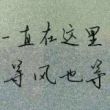 一直在这里
等风也等